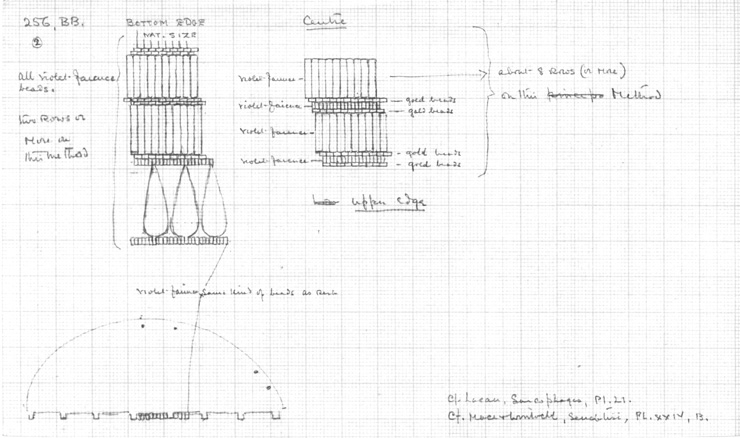 256, BB.
②
BOTTOM EDGE
NAT. SIZE
all violet-faience
beads.
two Rows or
More on
this method
Centre
violet-faience
violet-faience
violet-faience
violet-faience
gold beads
gold beads
gold beads
gold beads
about 8 Rows (or More)
on this Method
upper edge
violet-faience, same kind of beads as
Cf. Lacau, Sarcophages, Pl. 21.
Cf. Mace & Winlock, Senebtisi, PL. XXIV, B.